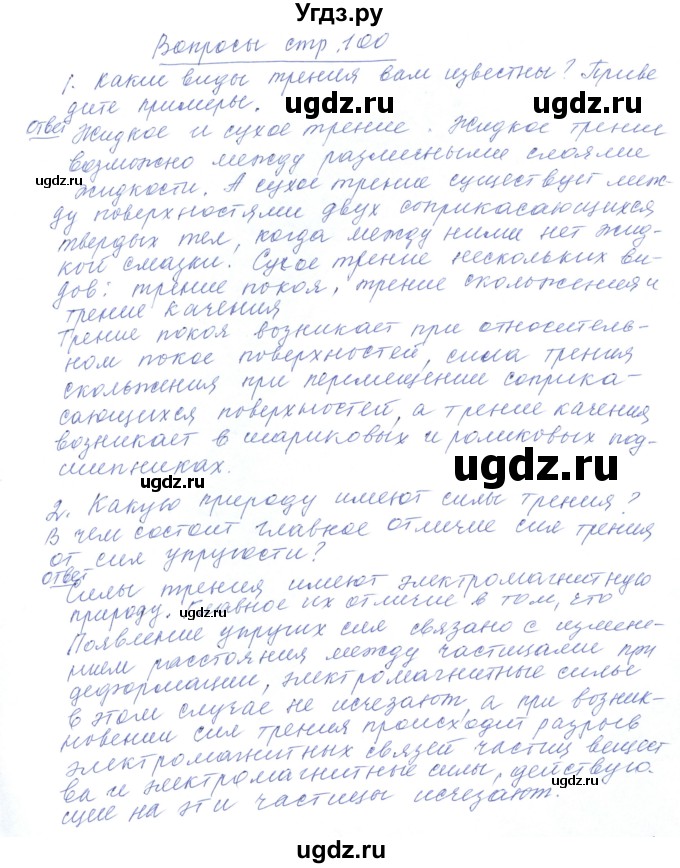 Угдз.ру
Вопросы стр. 100
1. Какие виды трения вам известны? Приве
дите примеры.
ugdz.ru
ugdz.ru
Ответ
Жидкое и сухое трение. Жидкое трение
возможно между разлисными слоями
ugdz.ru
жидкости. А сухое трение существует меж-
ду поверхностями двух соприкасающихся
твердых тел, когда между ними нет жид-
кой смазки. Сухое трение нескольких ви-
дов: трение покоя, трение скольжения и
трение качения
Трение покоя возникает при относитель-
ном покое поверхностей, сила трения
скольжения при перемещении соприка-
сающихся поверхностей, а трение качения
возникает в шариковых и роликовых под-
шипниках.
ugdz.ru
ugdz.ru
2. Какую природу имеют силы трения?
В чем состоит главное отличие сил трения
от сил упругости?
Ответ
ugdz.ru
Силы трения имеют электромагнитную
природу. Главное их отличие в том, что
ugdz.ru
Появление упругих сил связано с измене-
нием расстояния между частицами при
деформации, электромагнитные силы
в этом случае не исчезают, а при возник-
новении сил трения происходит разрыв
электромагнитных связей частиц вещест
ва и электромагнитные силы, действую.
щие на эти частицы исчезают.
ugdz.ru
ugdz.ru